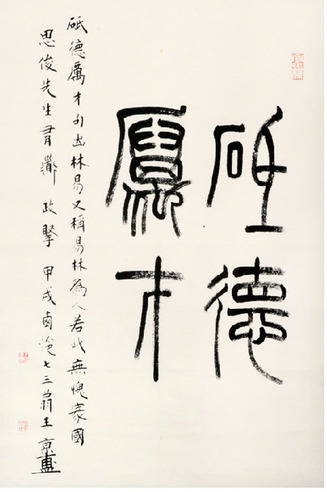 砥德
厲才
砥德厲才句出林易又稱易林為人若此無愧家國
思俊先生 政 甲戌 七三翁王京盙